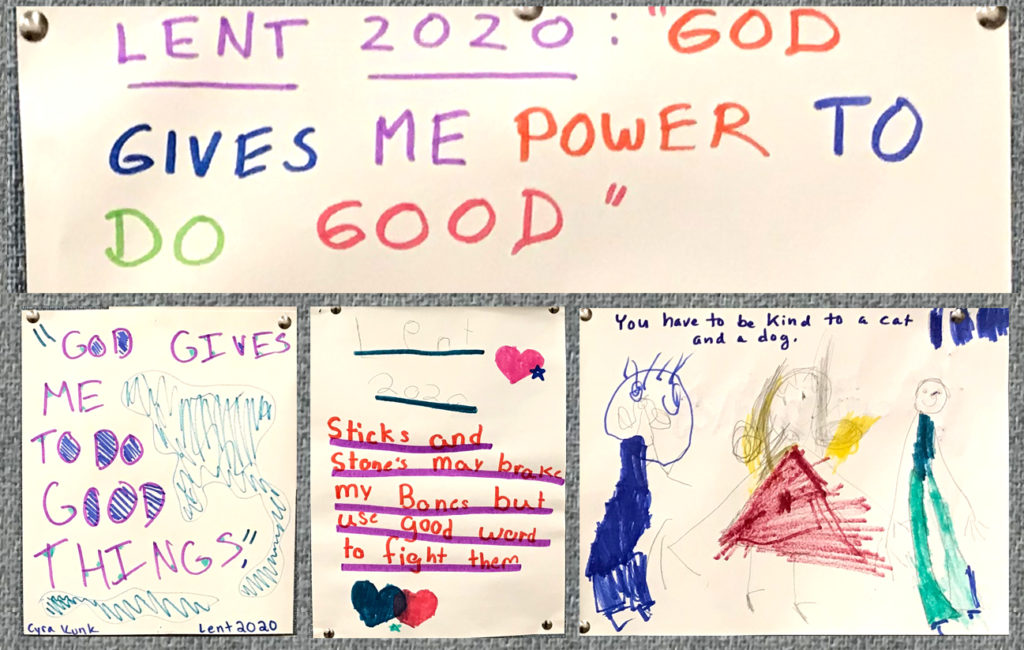 LENT 2020: "GOD
GIVES ME POWER TO
DO GOOD"
"GOD GIVES
ME
TO DO
GOOD
THINGS."
Cyra Kunk
Lent 2020
Lent
2020
Sticks and
Stone's may brake
my Bones but
use good word
to fight them
You have to be kind to a cat
and a dog.